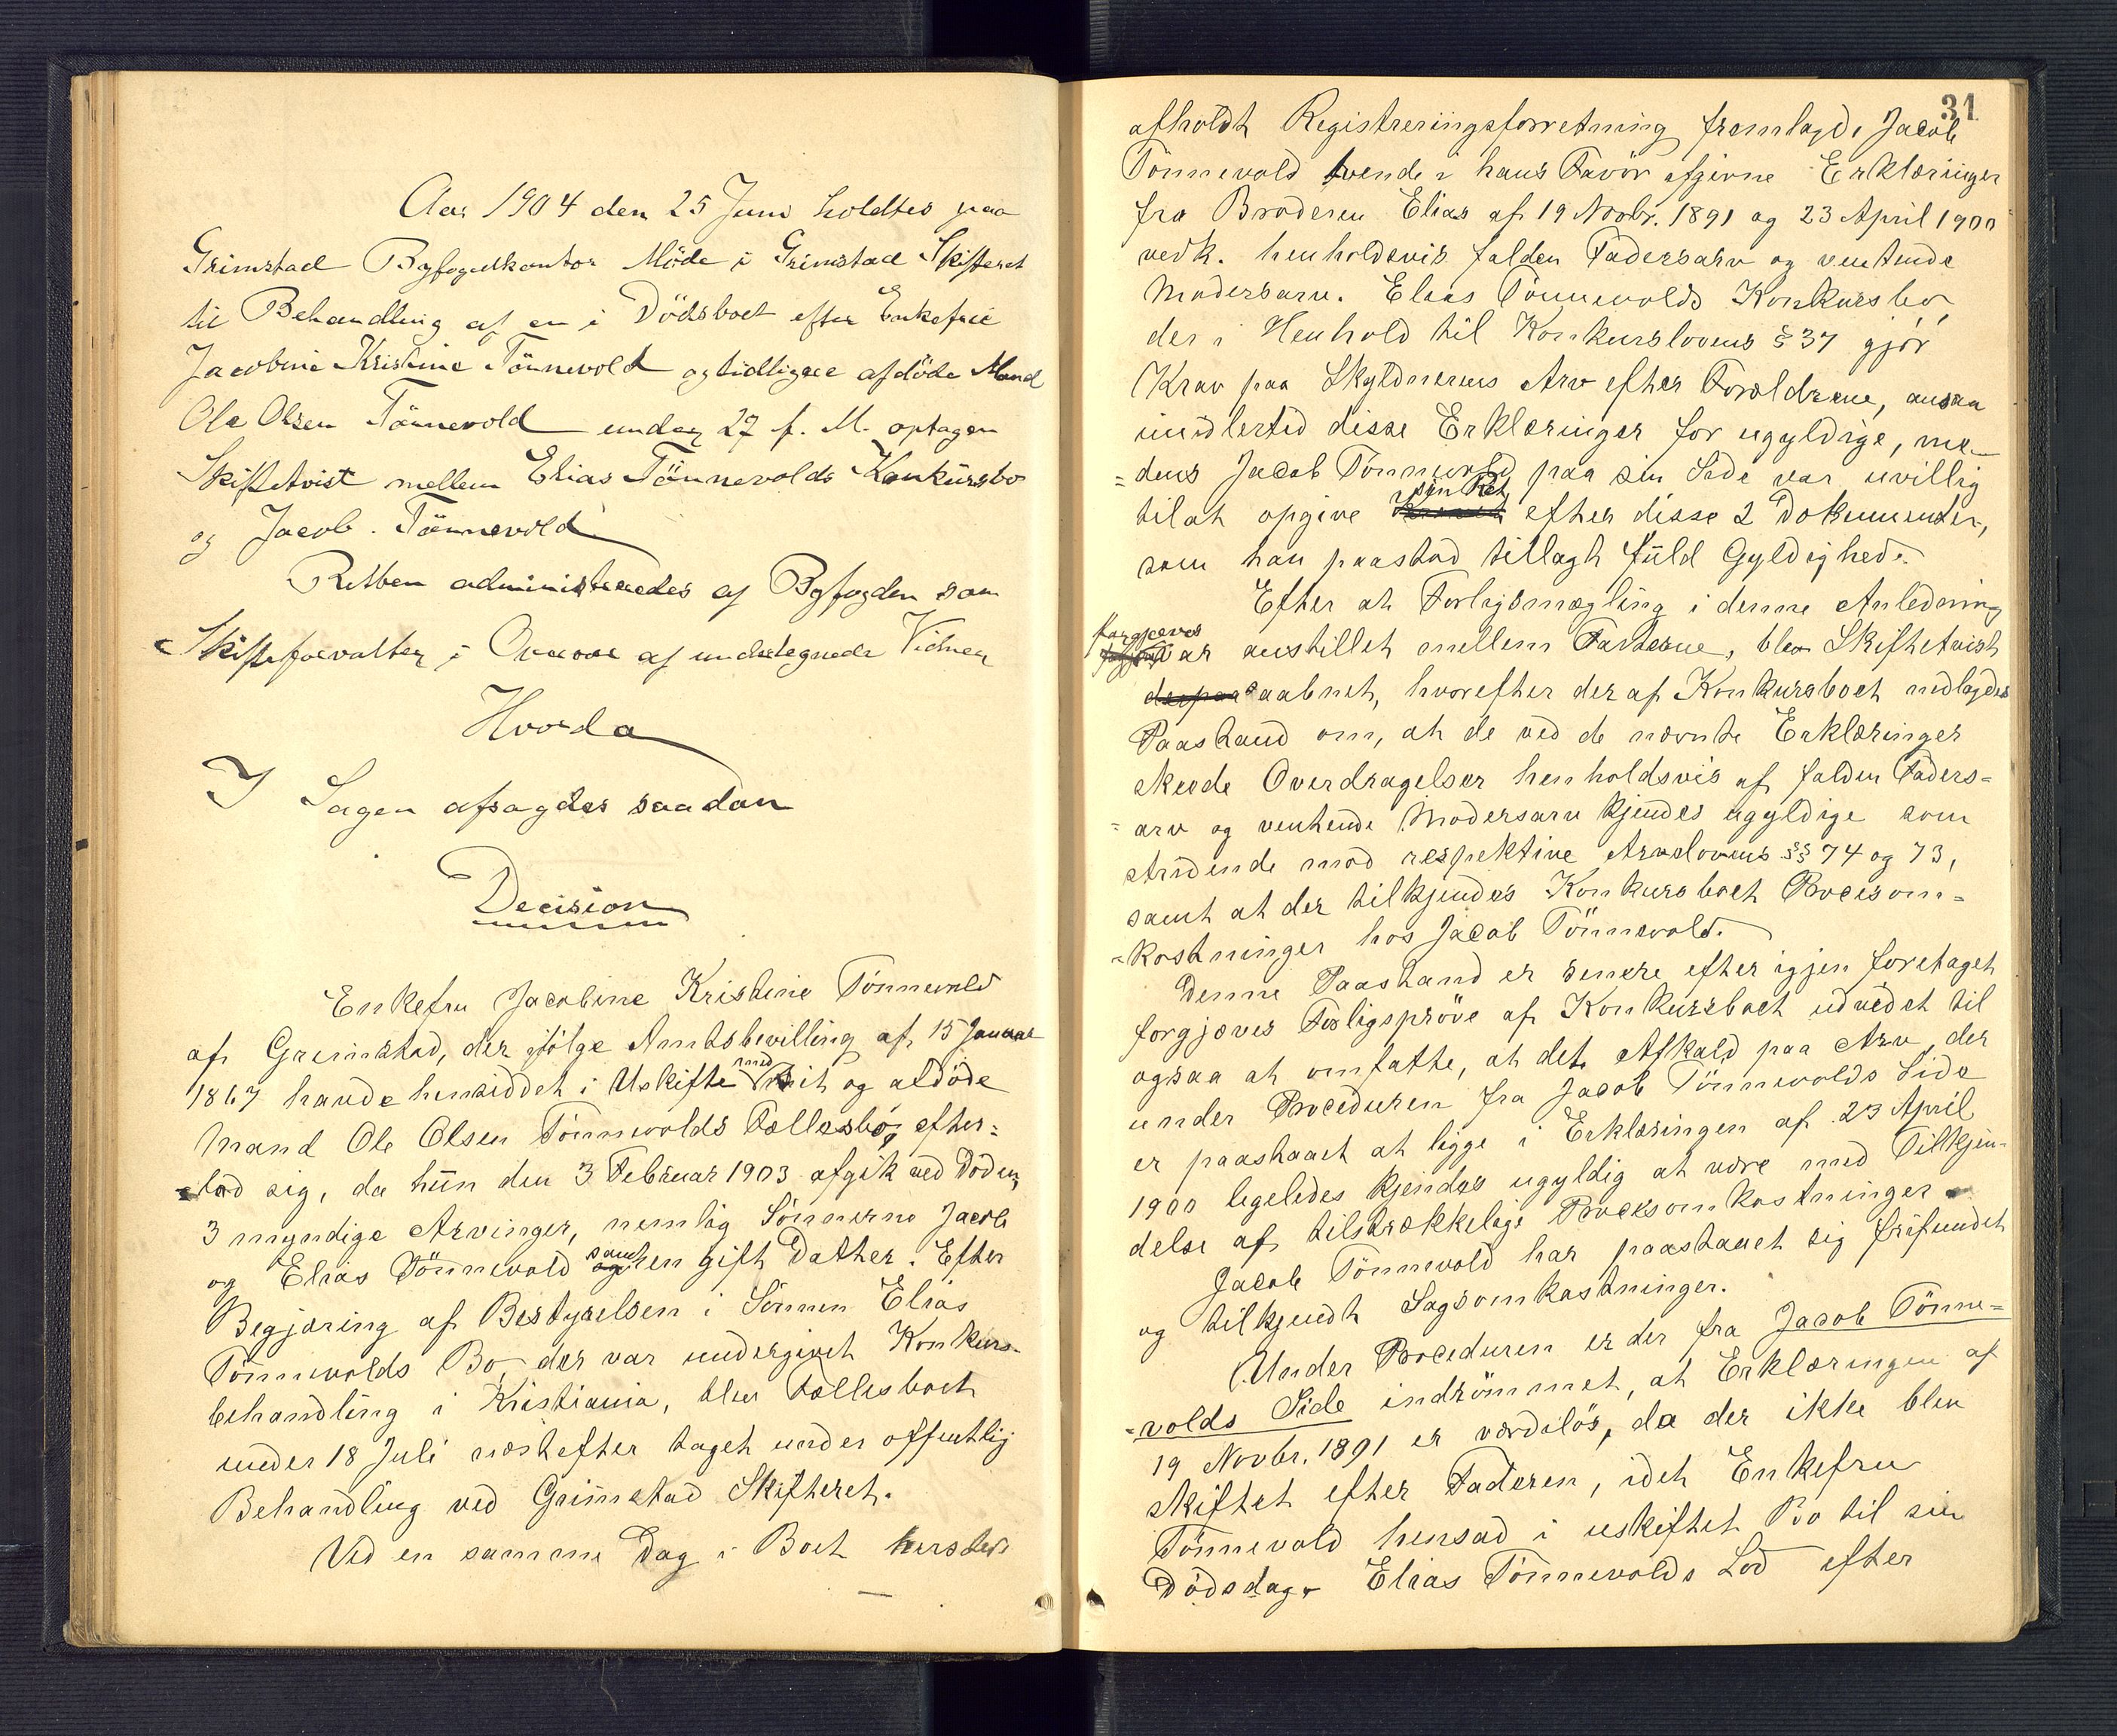 Aar 1904 den 25 Juni holdtes paa
Grimstad Byfogedkontor Möde i Grimstad Skifteret
til Behandling af en i Dödsboet efter Enkefru
Jacobine Kristine Tönnevold og tidligere afdöde Mand
Ole Olsen Tönnevold under 27 f. M. optagen
Skiftetvist mellem Elias Tönnevolds Konkursbo
og Jacob Tönnevold.
Retten administreredes af Byfogden som
Skifteforvalter i Overvær af undertegnede Vidner
Hvorda
I Sagen afsagdes saadan
Decision
Enkefru Jacobine Kristine Tönnevold
af Grimstad, der ifölge Amtsbevilling af 15 Januar
1867 havde hensiddet i Uskifte med sit og afdöde
Mand Ole Olsen Tönnevolds Fællesbo, efter=
=lod sig, da hun den 3 Februar 1903 afgik ved Döden,
3 myndige Arvinger, nemlig Sönnerne Jacob
og Elias Tönnevold samt en gift Datter. Efter
Begjæring af Bestyrelsen i Sönnen Elias
Tönnevolds Bo, der var undergivet Konkurs=
behandling i Kristiania, blev Fællesboet
under 18 Juli næstefter taget under offentlig
Behandling ved Grimstad Skifteret.
Ved en samme Dag i Boet hersteds
31
afholdt Registreringsforretning fremlagde Jacob
Tönnevold tvende i hans Favör afgivne Erklæringer
fra Broderen Elias af 19 Novbr. 1891 og 23 April 1900
vedk. henholdsvis falden Fadersarv og ventende
Modersarv. Elias Tönnevolds Konkursbo,
der i Henhold til Konkurslovens § 37 gjör
Krav paa Skyldnerens Arv efter Forældrene, ansaa
imidlertid disse Erklæringer for ugyldige, me=
=dens Jacob Tönnevold paa sin Side var uvillig
til at opgive sin Ret efter disse 2 Dokumenter,
som han paastod tillagt fuld Gyldighed.
Efter at Forligsmægling i denne Anledning
forgjæves var anstillet mellem Parterne, blev Skiftetvist
aabnet, hvorefter der af Konkursboet nedlagdes
Paastand om, at de ved de nævnte Erklæringer
skeede Overdragelser henholdsvis af falden Faders=
=arv og ventende Modersarv kjendes ugyldige som
stridende mod respektive Arvelovens §§ 74 og 73,
samt at der tilkjendes Konkursboet Procesom=
=kostninger hos Jacob Tönnevold.
Denne Paastand er senere efter igjen foretaget
forgjæves Forligspröve af Konkursboet udvidet til
ogsaa at omfatte, at det Afkald paa Arv, der
under Proceduren fra Jacob Tönnevolds Side
er paastaaet at ligge i Erklæringen af 23 April
1900 ligeledes kjendes ugyldig at være med Tilkjen=
delse af tilstrækkelige Procesomkostninger.
Jacob Tönnevold har paastaaet sig frifundet
og tilkjendt Sagsomkostninger.
Under Proceduren er der fra Jacob Tönne=
=volds Side indrömmet, at Erklæringen af
19 Novbr. 1891 er værdilös, da der ikke blev
skiftet efter Faderen, idet Enkefru
Tönnevold hensad i uskiftet Bo til sin
Dödsdag. Elias Tönnevolds Lod efter